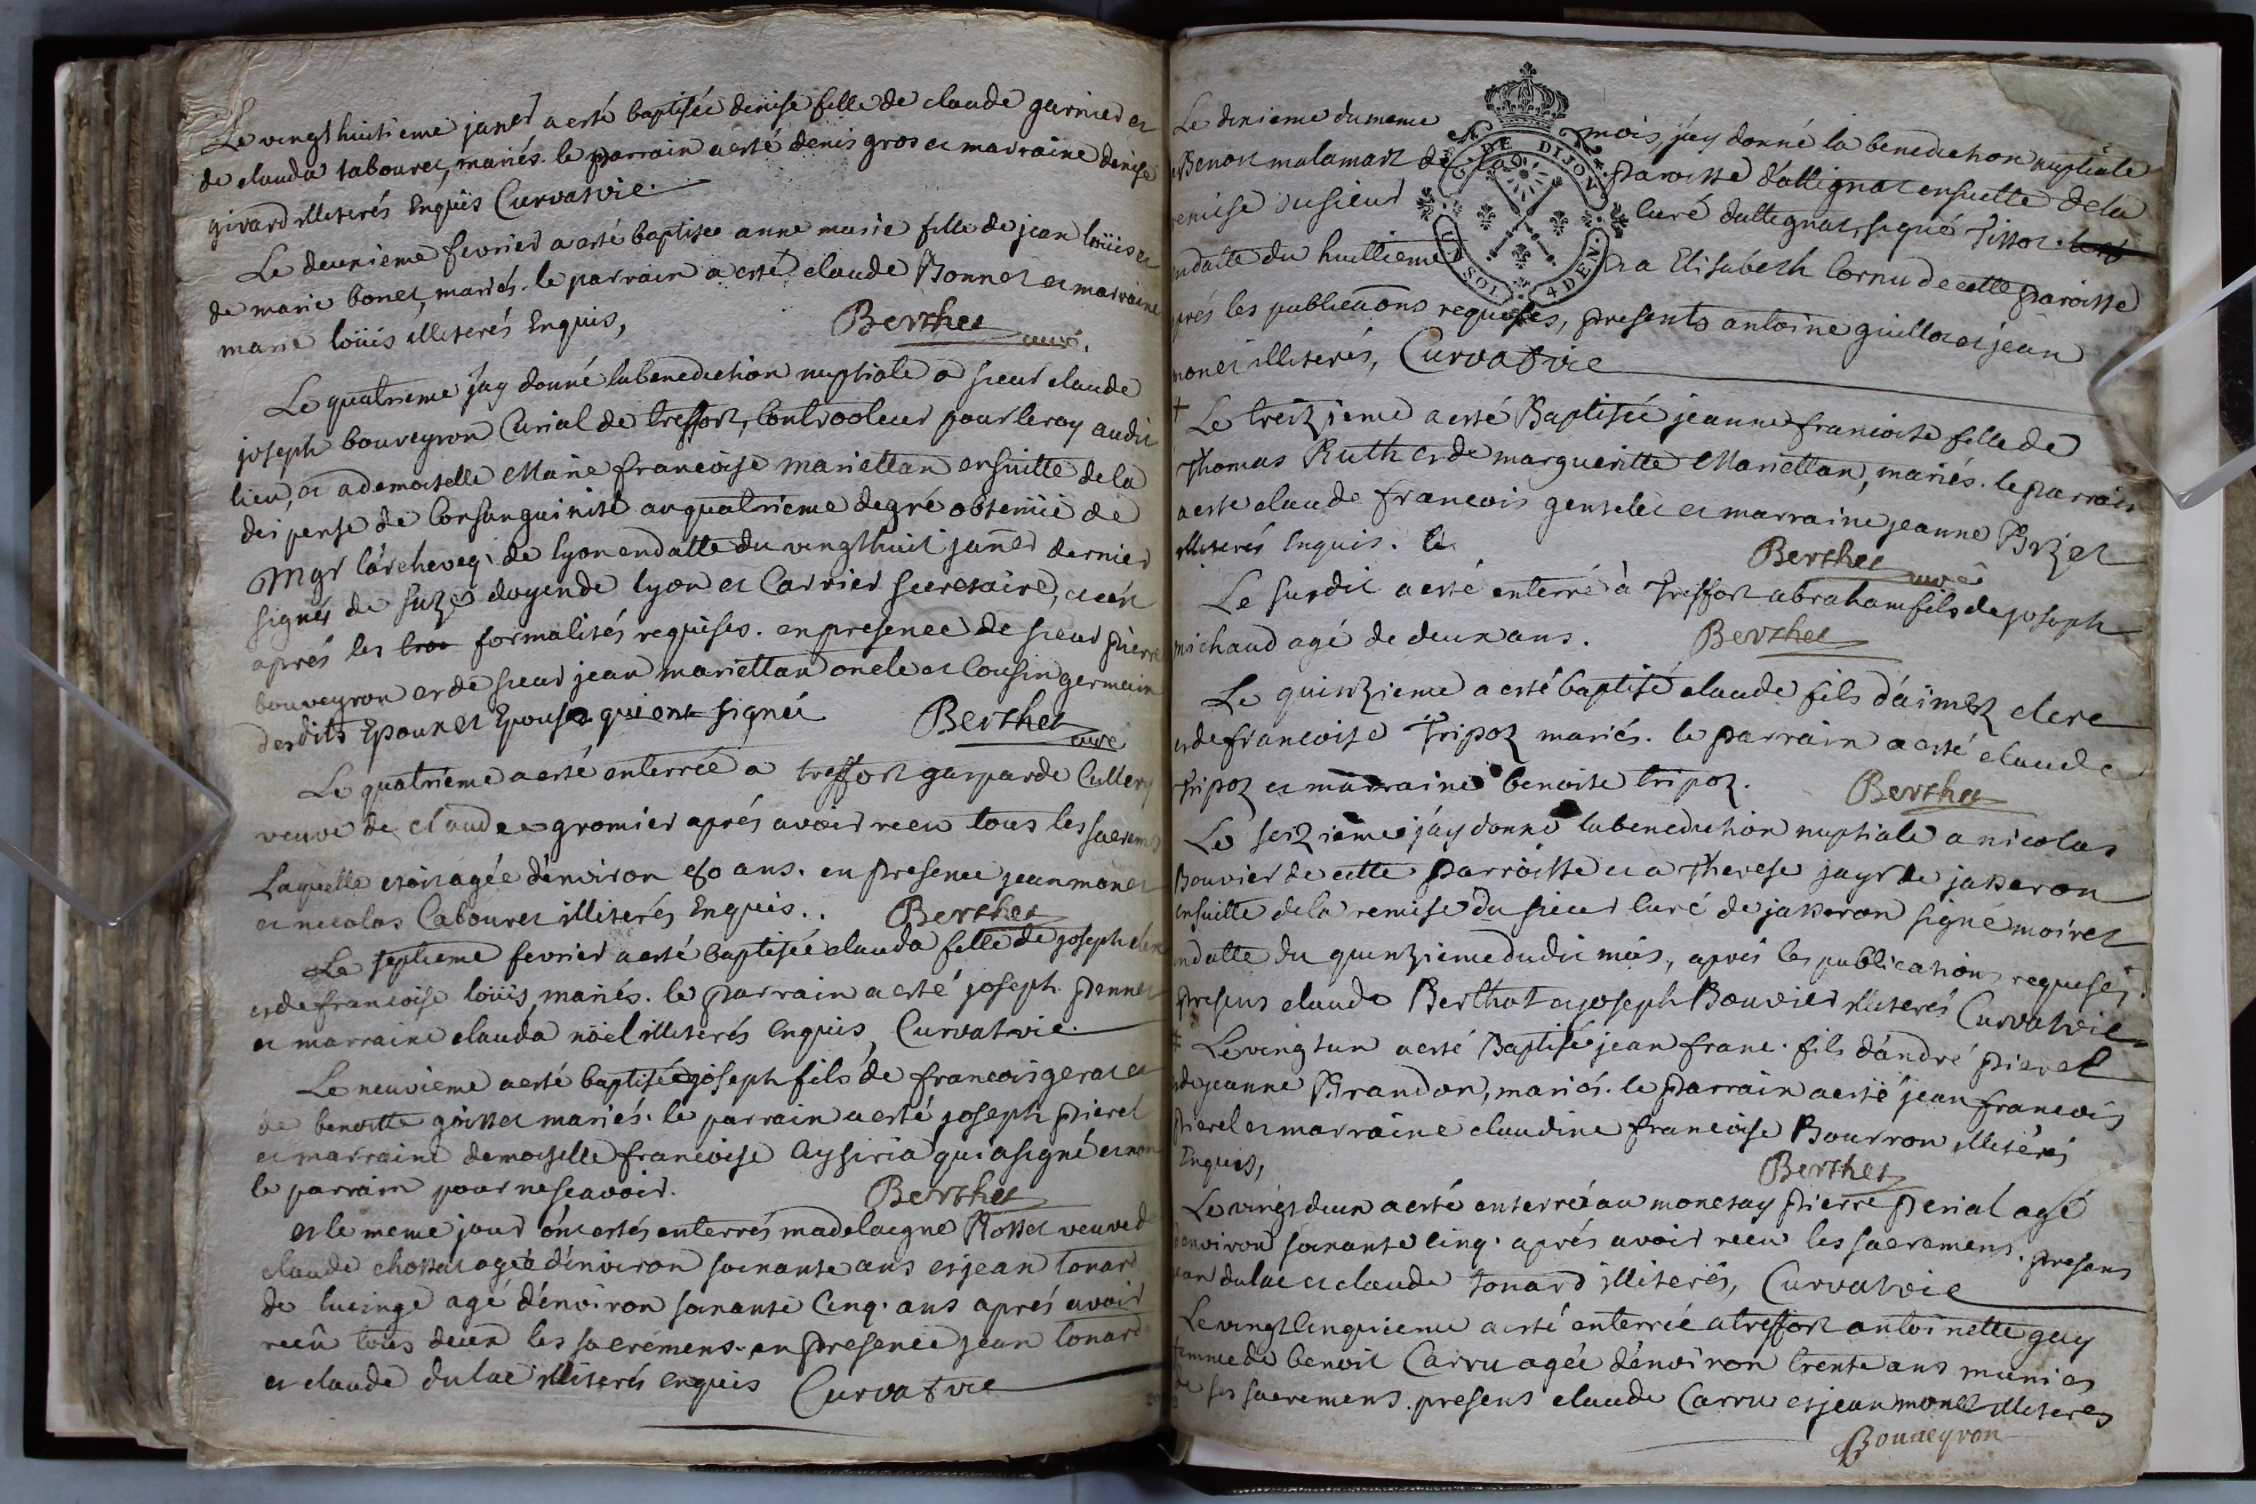 Le vingt huitieme janer a esté baptisée denise fille de claude garnier et
de clauda tabouret, mariés. le parrain a esté denis gros et marraine denise
girard illiterés Enquis Curvat vic.
Le deuxieme fevrier a esté baptisée anne marie fille de jean loüis et
de marie bonet, mariés. le parrain a esté claude Bonnet et marraine
marie loüis illiterés Enquis, Berthet curé.
Le quatrieme j'ay donné la benediction nuptiale a sieur claude
joseph bouveyron Curial de treffort, Controoleur pour le roy audit
lieu, et a demoiselle Marie francoise mariettan ensuitte de la
dispense de Consanguinité au quatrieme degré obtenüe de
Mgr l'archeveq. de lyon en datte du vingt huit janer dernier
signés de suzé doyen de lyon et Carrier secretaire, et
aprés les formalités requises. en presence de sieur pierre
bouveyron et de sieur jean mariettan oncle et Cousin germain
desdits Epoux et Epouse qui ont signéé Berthet curé
Le quatrieme a esté enterréé a treffort gasparde Cullery
veuve de claude gromier aprés avoir recu tous les sacrem
Laquelle etoit agée d'environ 80 ans. en presence jean monet
et nicolas Cabouret illiterés Enquis.. Berthet
Le septieme fevrier a esté baptisée clauda fille de joseph clerc
et de francoise loüis, mariés. le parrain a esté joseph pennet
et marraine clauda noël illiterés Enquis, Curvat vic.
Le neuvieme a esté baptisée joseph fils de francois gerat et
de benoitte goisset mariés. le parrain a esté joseph pierel
et marraine demoiselle francoise Aysiria qui a signé et non
le parrain pour ne scavoir. Berthet
et le meme jour ont estés enterrés madelaigne Rosset veuve de
claude chossat agéé d'environ soixante ans et jean tonard
de lucinge agé d'environ soixante Cinq. ans aprés avoir
recû tous deux les sacremens. en presence jean tonard
et claude dulac illiterés enquis Curvat vic
Le dixieme du meme mois, j'ay donné la benediction nuptiale
a Benoit malamart de la paroisse d'attignat ensuitte de la
remise du sieur Curé dattegnat, signé Tissot
en datte du huittieme et a Elisabeth Cornu de cette paroisse
aprés les publications requises, presents antoine guillot et jean
monet illiterés, Curvat vic
Le treizieme a esté Baptisée jeanne francoise fille de
Thomas Ruth et de margueritte Mariettan, mariés. le parrain
a esté claude francois gentelet et marraine jeanne Brzet
illiterés Enquis. Berthet curé
Le susdit a esté enterré à Treffort abraham fils de joseph
michaud agé de deux ans. Berthet
Le quinzieme a esté baptisé claude fils d'aimez clerc
et de francoise Tripoz mariés. le parrain a esté claude
tripoz et marraine benoite tripoz. Berthet
Le seizieme j'ay donné la benediction nuptiale a nicolas
Bouvier de cette parroisse et a Therese jayr de jasseron
ensuitte de la remise du sieur Curé de jasseron signé moiret
en datte du quinzieme dudit mois, aprés les publications requises.
presens claude Berthot et joseph Bouvier illiterés Curvat vic
Le vingt un a esté Baptisé jean franc. fils d'andré pierel
et de jeanne Brandon, mariés. le parrain a esté jean francois
pierel et marraine claudine francoise Bourron illiterés
Enquis, Berthet
Le vingt deux a esté enterré au monetay pierre perial agé
d'environ soixante cinq. aprés avoir recu les sacremens. presens
jean dulac et claude tonard illiterés, Curvat vic
Le vingt cinquieme a esté enterréé a treffort antoinette guy
femme de benoit Carru agée d'environ trente ans munies
de ses sacremens. presens claude Carru et jean monet illiteres
Bouveyron
G. DE DIJON
SOL 4 DEN.